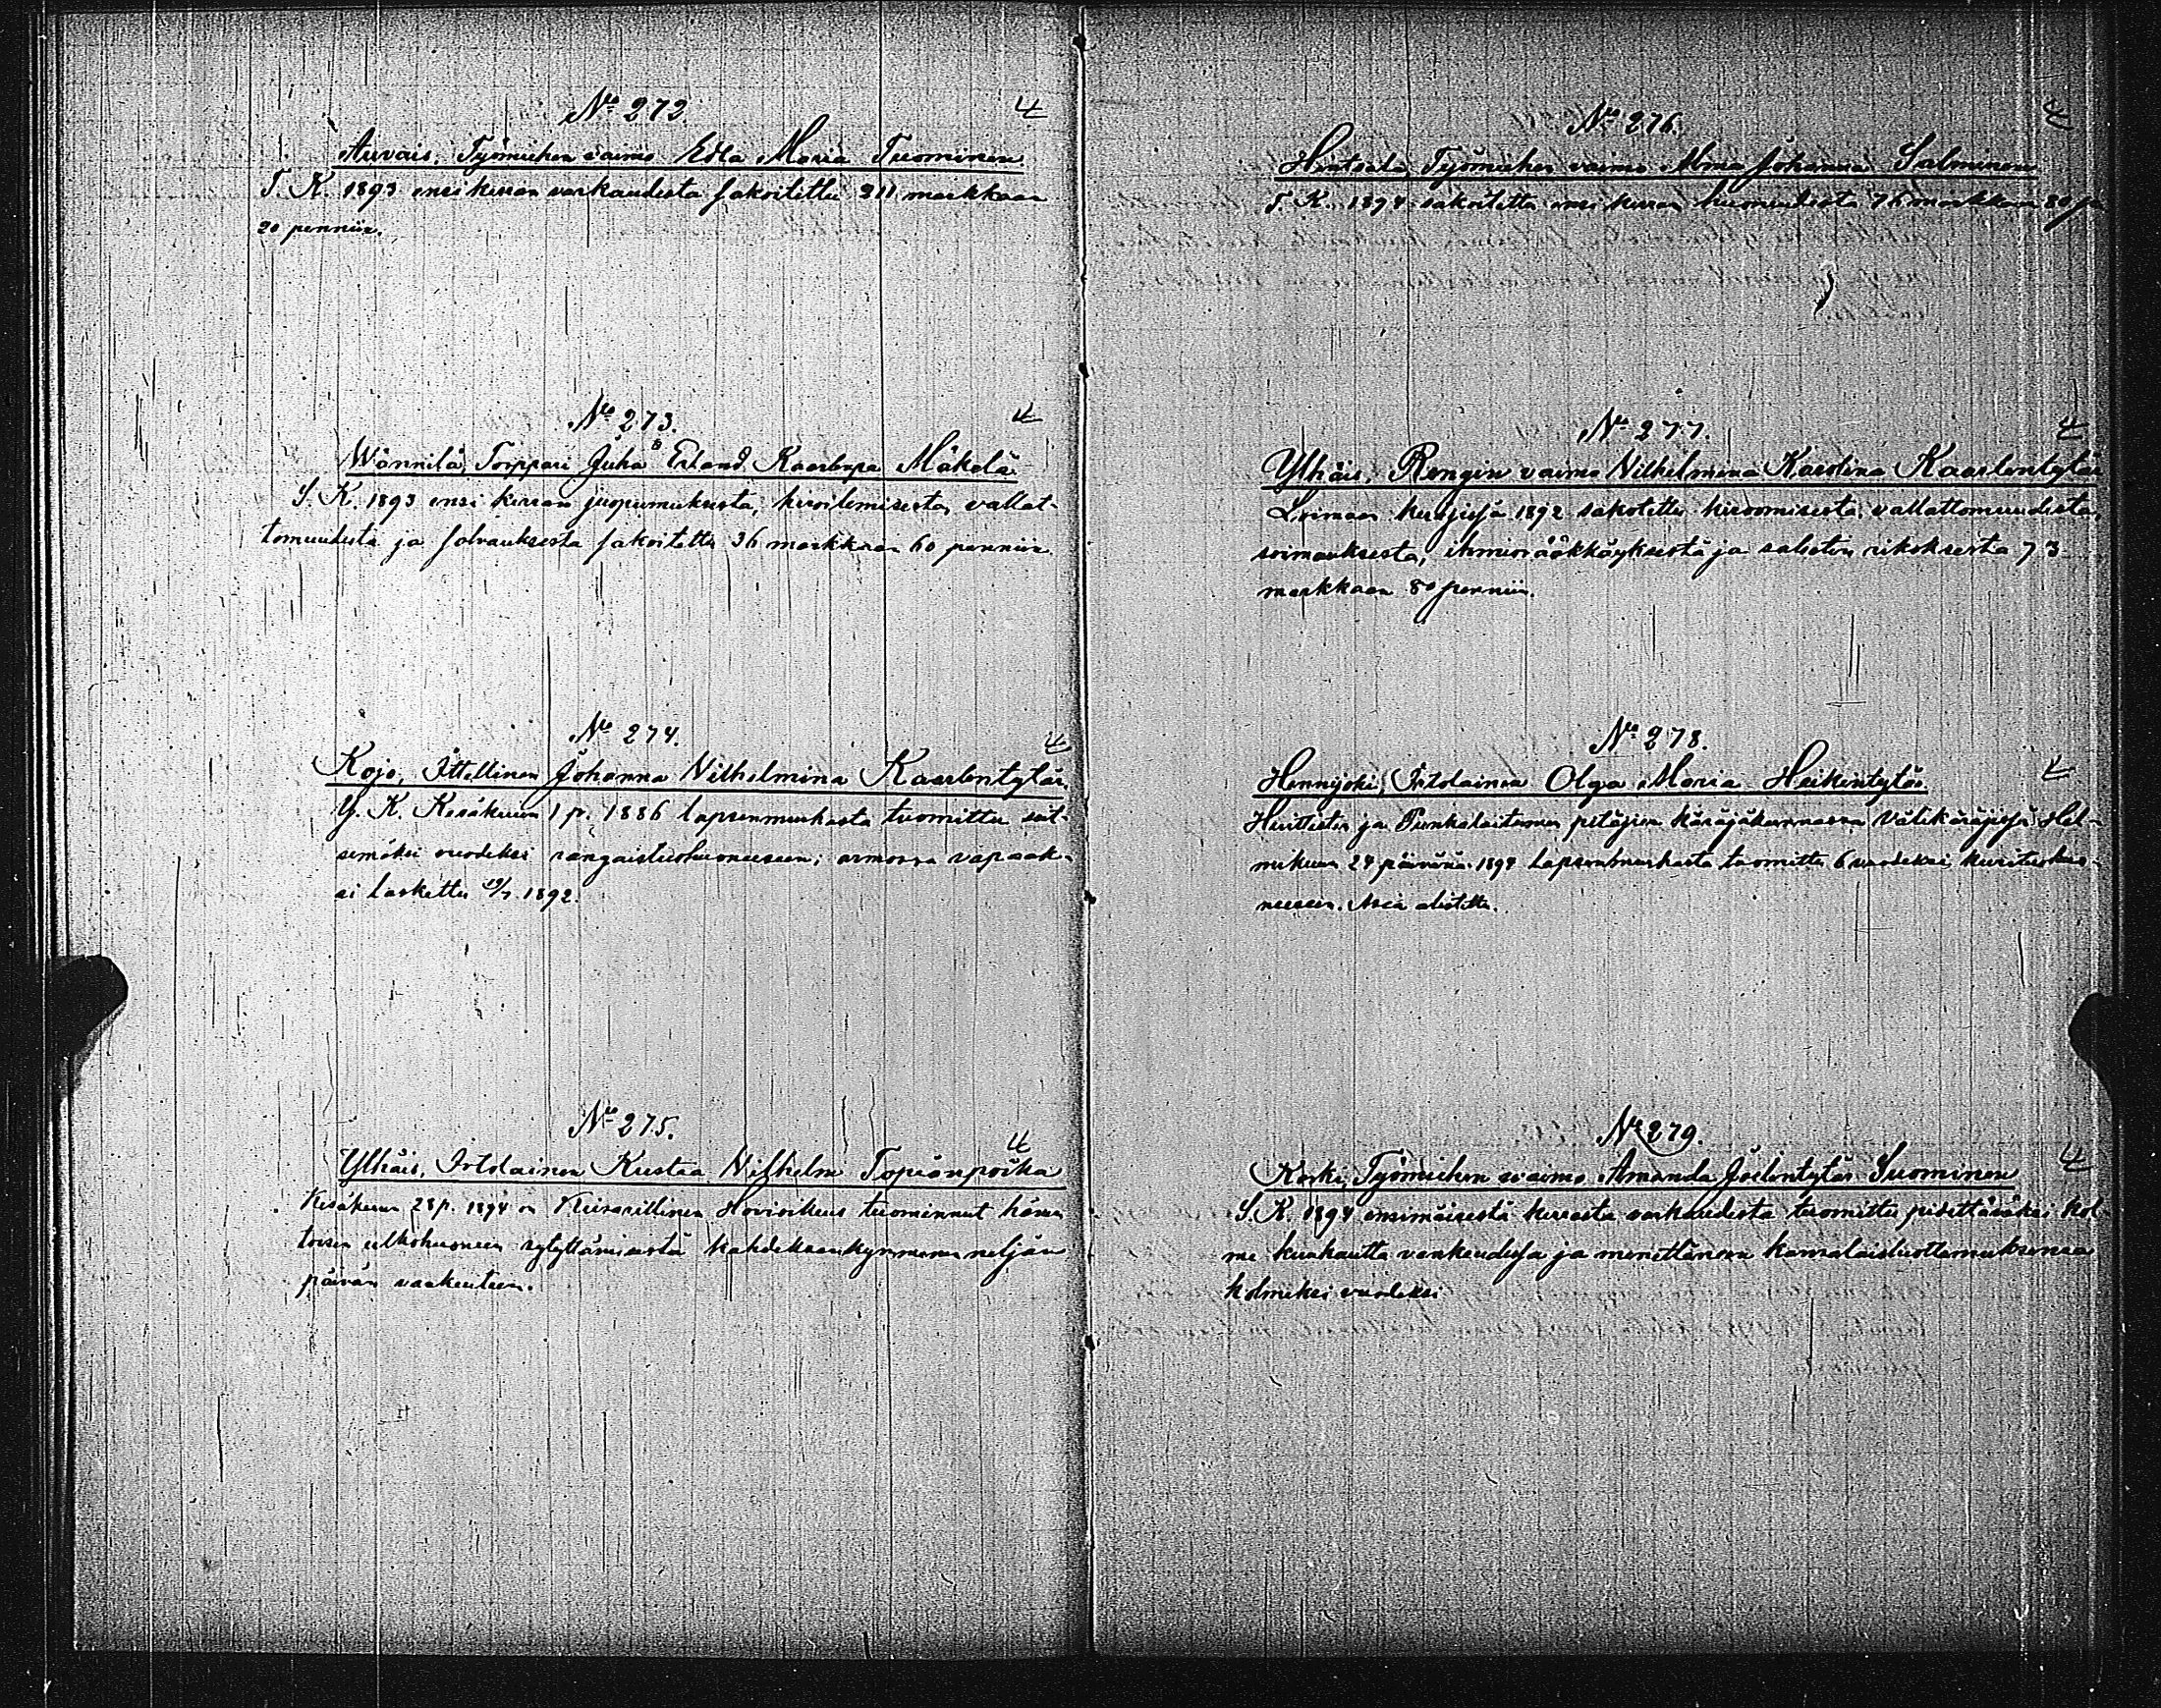 No 272.
Auvais, Työmiehen vaimo Edla Maria Tuominen
T. K. 1893 ensi kerran varkaudesta sakoitettu 211 markkaan
20 penniin.
No 273.
Männilä, Torppari Juha Erland Kaarlenpa Mäkelä
S. K. 1893 ensi kerran juopumuksesta, kiroilemisesta, vallat-
tomuudesta ja solvauksesta sakoitettu 36 markkaan 60 penniin
No 274.
Kojo, Ittellinen Johanna Vilhelmina Kaarlentytär
Y. K. Kesäkuun 1 p. 1886 lapsenmurhasta tuomittu seit-
semäksi vuodeksi rangaistushuoneeseen; armossa vapaak-
si laskettu 1892.
No 275.
Ylhäis, Irtolainen Kustaa Vilhelm Topianpoika
Kesäkuun 28 p. 1894 on Keisarillinen Hovioikeus tuominnut hänen
toisen ulkohuoneen sytyttämisestä kahdeksankymmenen neljän
päivän vankeuteen.
No 276.
Hintsala, Työmiehen vaimo Alma Johanna Salminen
T. K. 1894 sakoitettu ensi kerran 76 markkaan 80 p
No 277.
Ylhäis, Rengin vaimo Vilhelmina Karolina Kaarlentytär
Loimaan käräjissä 1892 sakotettu kiroomisesta, vallattomuudesta,
soimauksesta, ihmisrääkkäyksestä ja sabatin rikoksesta 73
markkaan 80 penniin.
No 278.
Hennijoki, Irtolainen Olga Maria Heikintytär
Huittisten ja Punkalaitumen pitäjien käräjäkunnassa välikäräjissä Hel-
mikuun 24 päivänä 1894 lapsenmurhasta tuomittu 6 vuodeksi kuritushuo-
neeseen. Asia alistettu.
No 279.
Korki, Työmiehen vaimo Amanda Joelintytär Suominen
S. K. 1894 ensimäisestä kerrasta varkaudesta tuomittu pidettäväksi kol
me kuukautta vankeudessa ja menettäneen kansalaisluottamuksensa
kolmeksi vuodeksi